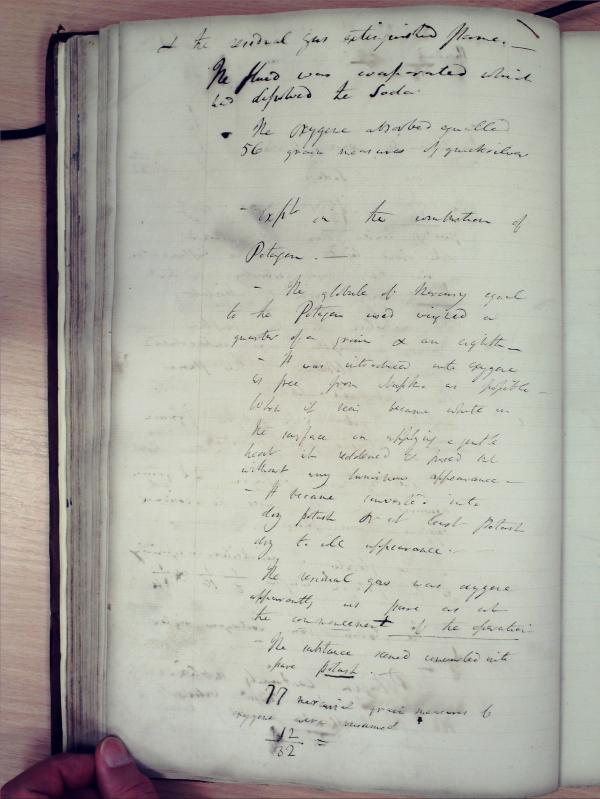 & the residual gas extinguished flame. —
The fluid was evaporated which
had dissolved the Soda.
The oxygene absorbed equalled
56 grain measures of quicksilver
– Expt on the combustion of
Potagen. —
– The globule of Mercury equal
to the Potagen used weighed a
quarter of a grain & an eighth —
– It was introduced into oxygene
as free from as possible –
When it was became white on
the surface on applying a gentle
heat it reddened &
without any luminous appearance –
– It became converted into
dry potash or at least potash
dry to all appearance. –
The residual gas was oxygene
apparently as pure as at
the commencement of the operation
– The substance seemed converted into
pure potash. –
77 mercurial grain measures of
oxygene were consumed
12
32 =